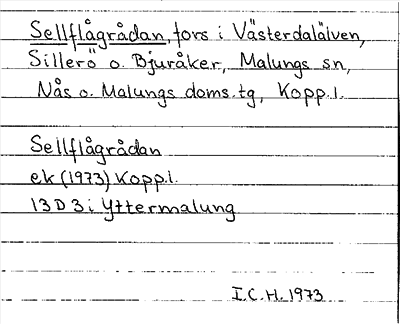 Sellflågrådan, fors i Västerdalälven,
Sillerö o. Bjuråker, Malungs sn,
Nås o. Malungs doms.tg, Kopp.l.
Sellflågrådan
ek (1973) Kopp.l.
13 D 3 i Yttermalung
I.C.H. 1973